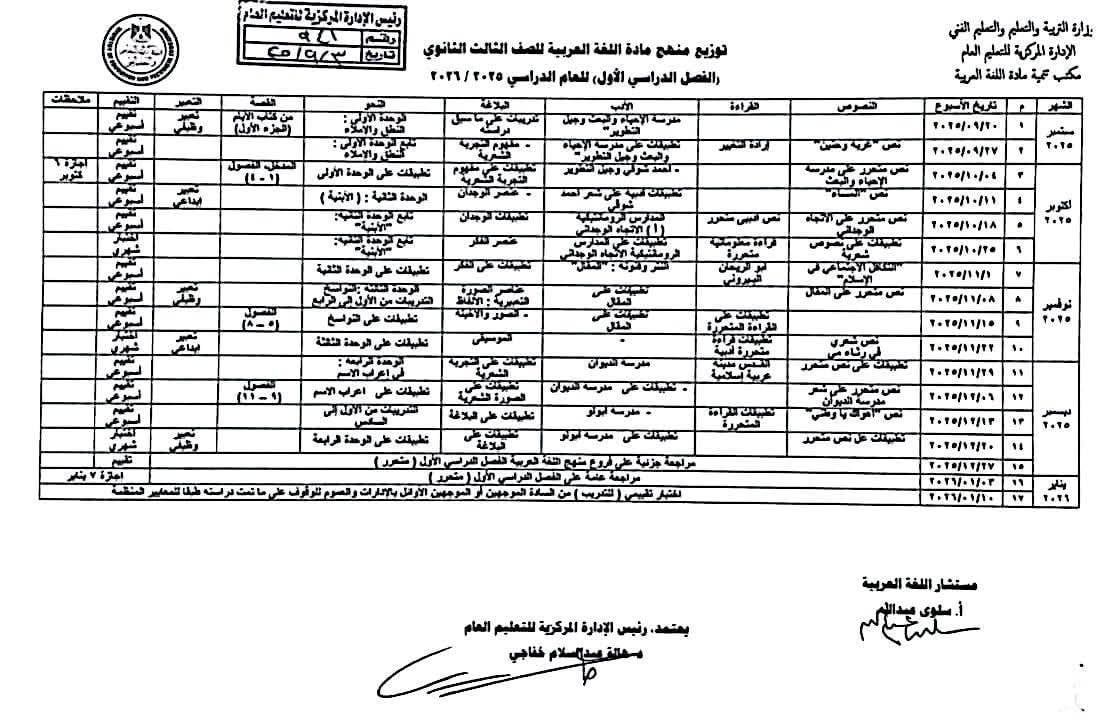 وزارة التربية والتعليم والتعليم الفني
الإدارة المركزية للتعليم العام
مكتب تنمية مادة اللغة العربية
رئيس الإدارة المركزية للتعليم العام
رقم ٩٤١
تاريخ ٢٥/٩/٣
توزيع منهج مادة اللغة العربية للصف الثالث الثانوي
(الفصل الدراسي الأول) للعام الدراسي ٢٠٢٥ / ٢٠٢٦
الشهر م تاريخ الأسبوع النصوص القراءة الأدب البلاغة النحو القصة التعبير التقييم ملاحظات
سبتمبر ٢٠٢٥
١ ٢٠٢٥/٠٩/٢٠ مدرسة الإحياء والبعث وجيل التطوير" تدريبات على ما سبق دراسته الوحدة الأولى : النطق والاملاء من كتاب الأيام (الجزء الأول) تعبير وظيفي تقييم أسبوعي
٢ ٢٠٢٥/٠٩/٢٧ نص "غربة وحنين" إرادة التغيير تطبيقات على مدرسة الإحياء والبعث وجيل التطوير" - مفهوم التجربة الشعرية تابع الوحدة الأولى : النطق والاملاء تقييم أسبوعي
أكتوبر ٢٠٢٥
٣ ٢٠٢٥/١٠/٠٤ نص متحرر على مدرسة الإحياء والبعث - احمد شوقي وجيل التطوير تطبيقات على مفهوم التجربة الشعرية تطبيقات على الوحدة الأولى المدخل، الفصول (١ – ٤) تقييم أسبوعي اجازة ٦ أكتوبر
٤ ٢٠٢٥/١٠/١١ نص "المساء" تطبيقات أدبية على شعر احمد شوقي - عنصر الوجدان الوحدة الثانية : ( الأبنية ) تعبير ابداعي تقييم أسبوعي
٥ ٢٠٢٥/١٠/١٨ نص متحرر على الاتجاه الوجداني نص ادبي متحرر المدارس الرومانتيكية (أ) الاتجاه الوجداني تطبيقات الوجدان تابع الوحدة الثانية: "الأبنية" تقييم أسبوعي
٦ ٢٠٢٥/١٠/٢٥ تطبيقات على نصوص شعرية قراءة معلوماتية متحررة تطبيقات على المدارس الرومانتيكية الاتجاه الوجداني عنصر الفكر تابع الوحدة الثانية: "الأبنية" اختبار شهري
نوفمبر ٢٠٢٥
٧ ٢٠٢٥/١١/١ "التكافل الاجتماعي في الإسلام" ابو الريحان البيروني النثر وفنونه : "المقال" تطبيقات على الفكر تطبيقات على الوحدة الثانية تقييم أسبوعي
٨ ٢٠٢٥/١١/٠٨ نص متحرر على المقال تطبيقات على المقال عناصر الصورة التعبيرية : الألفاظ الوحدة الثالثة :النواسخ التدريبات من الأول إلى الرابع تعبير وظيفي تقييم أسبوعي
٩ ٢٠٢٥/١١/١٥ تطبيقات على القراءة المتحررة تطبيقات على المقال - الصور والاخيلة تطبيقات على النواسخ الفصول (٥ – ٨) تقييم أسبوعي
١٠ ٢٠٢٥/١١/٢٢ نص شعري في رثاء مي تطبيقات قراءة متحررة أدبية - الموسيقى تطبيقات على الوحدة الثالثة تعبير ابداعي اختبار شهري
ديسمبر ٢٠٢٥
١١ ٢٠٢٥/١١/٢٩ تطبيقات على نص متحرر القدس مدينة عربية إسلامية مدرسة الديوان تطبيقات على التجربة الشعرية الوحدة الرابعة: في إعراب الاسم تقييم أسبوعي
١٢ ٢٠٢٥/١٢/٠٦ نص متحرر على شعر مدرسة الديوان - تطبيقات على مدرسة الديوان تطبيقات على الصورة الشعرية تطبيقات على اعراب الاسم الفصول (٩ – ١١) تقييم أسبوعي
١٣ ٢٠٢٥/١٢/١٣ نص "أهواك يا وطني" تطبيقات القراءة المتحررة - مدرسة أبولو تطبيقات على البلاغة التدريبات من الأول إلى السادس تقييم أسبوعي
١٤ ٢٠٢٥/١٢/٢٠ تطبيقات عل نص متحرر تطبيقات على مدرسة أبولو تطبيقات على البلاغة تطبيقات على الوحدة الرابعة تعبير وظيفي اختبار شهري
١٥ ٢٠٢٥/١٢/٢٧ مراجعة جزئية على فروع منهج اللغة العربية الفصل الدراسي الأول ( متحرر ) تقييم
يناير ٢٠٢٦
١٦ ٢٠٢٦/٠١/٠٣ مراجعة عامة على الفصل الدراسي الأول ( متحرر ) اجازة ٧ يناير
١٧ ٢٠٢٦/٠١/١٠ اختبار تقييمي ( للتدريب ) من السادة الموجهين أو الموجهين الأوائل بالادارات والعموم للوقوف على ما تمت دراسته طبقا للمعايير المنظمة
مستشار اللغة العربية
أ. سلوى عبدالله
يعتمد، رئيس الإدارة المركزية للتعليم العام
د. هالة عبدالسلام خفاجي